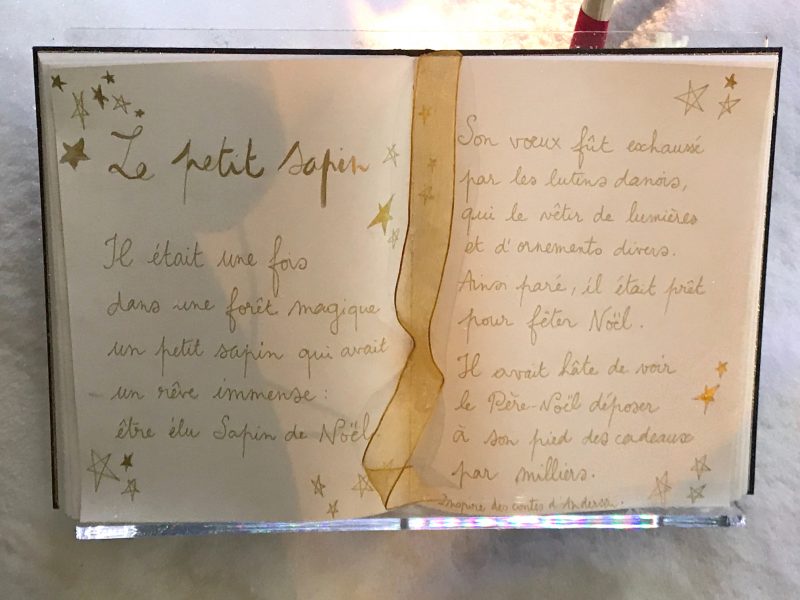 Le petit sapin
Il était une fois
dans une forêt magique
un petit sapin qui avait
un rêve immense :
être élu Sapin de Noël.
Son vœux fût exhaussé
par les lutins danois,
qui le vêtir de lumières
et d'ornements divers.
Ainsi paré, il était prêt
pour fêter Noël.
Il avait hâte de voir
le Père-Noël déposer
à son pied des cadeaux
par milliers.
Inspiré des contes d'Andersen.